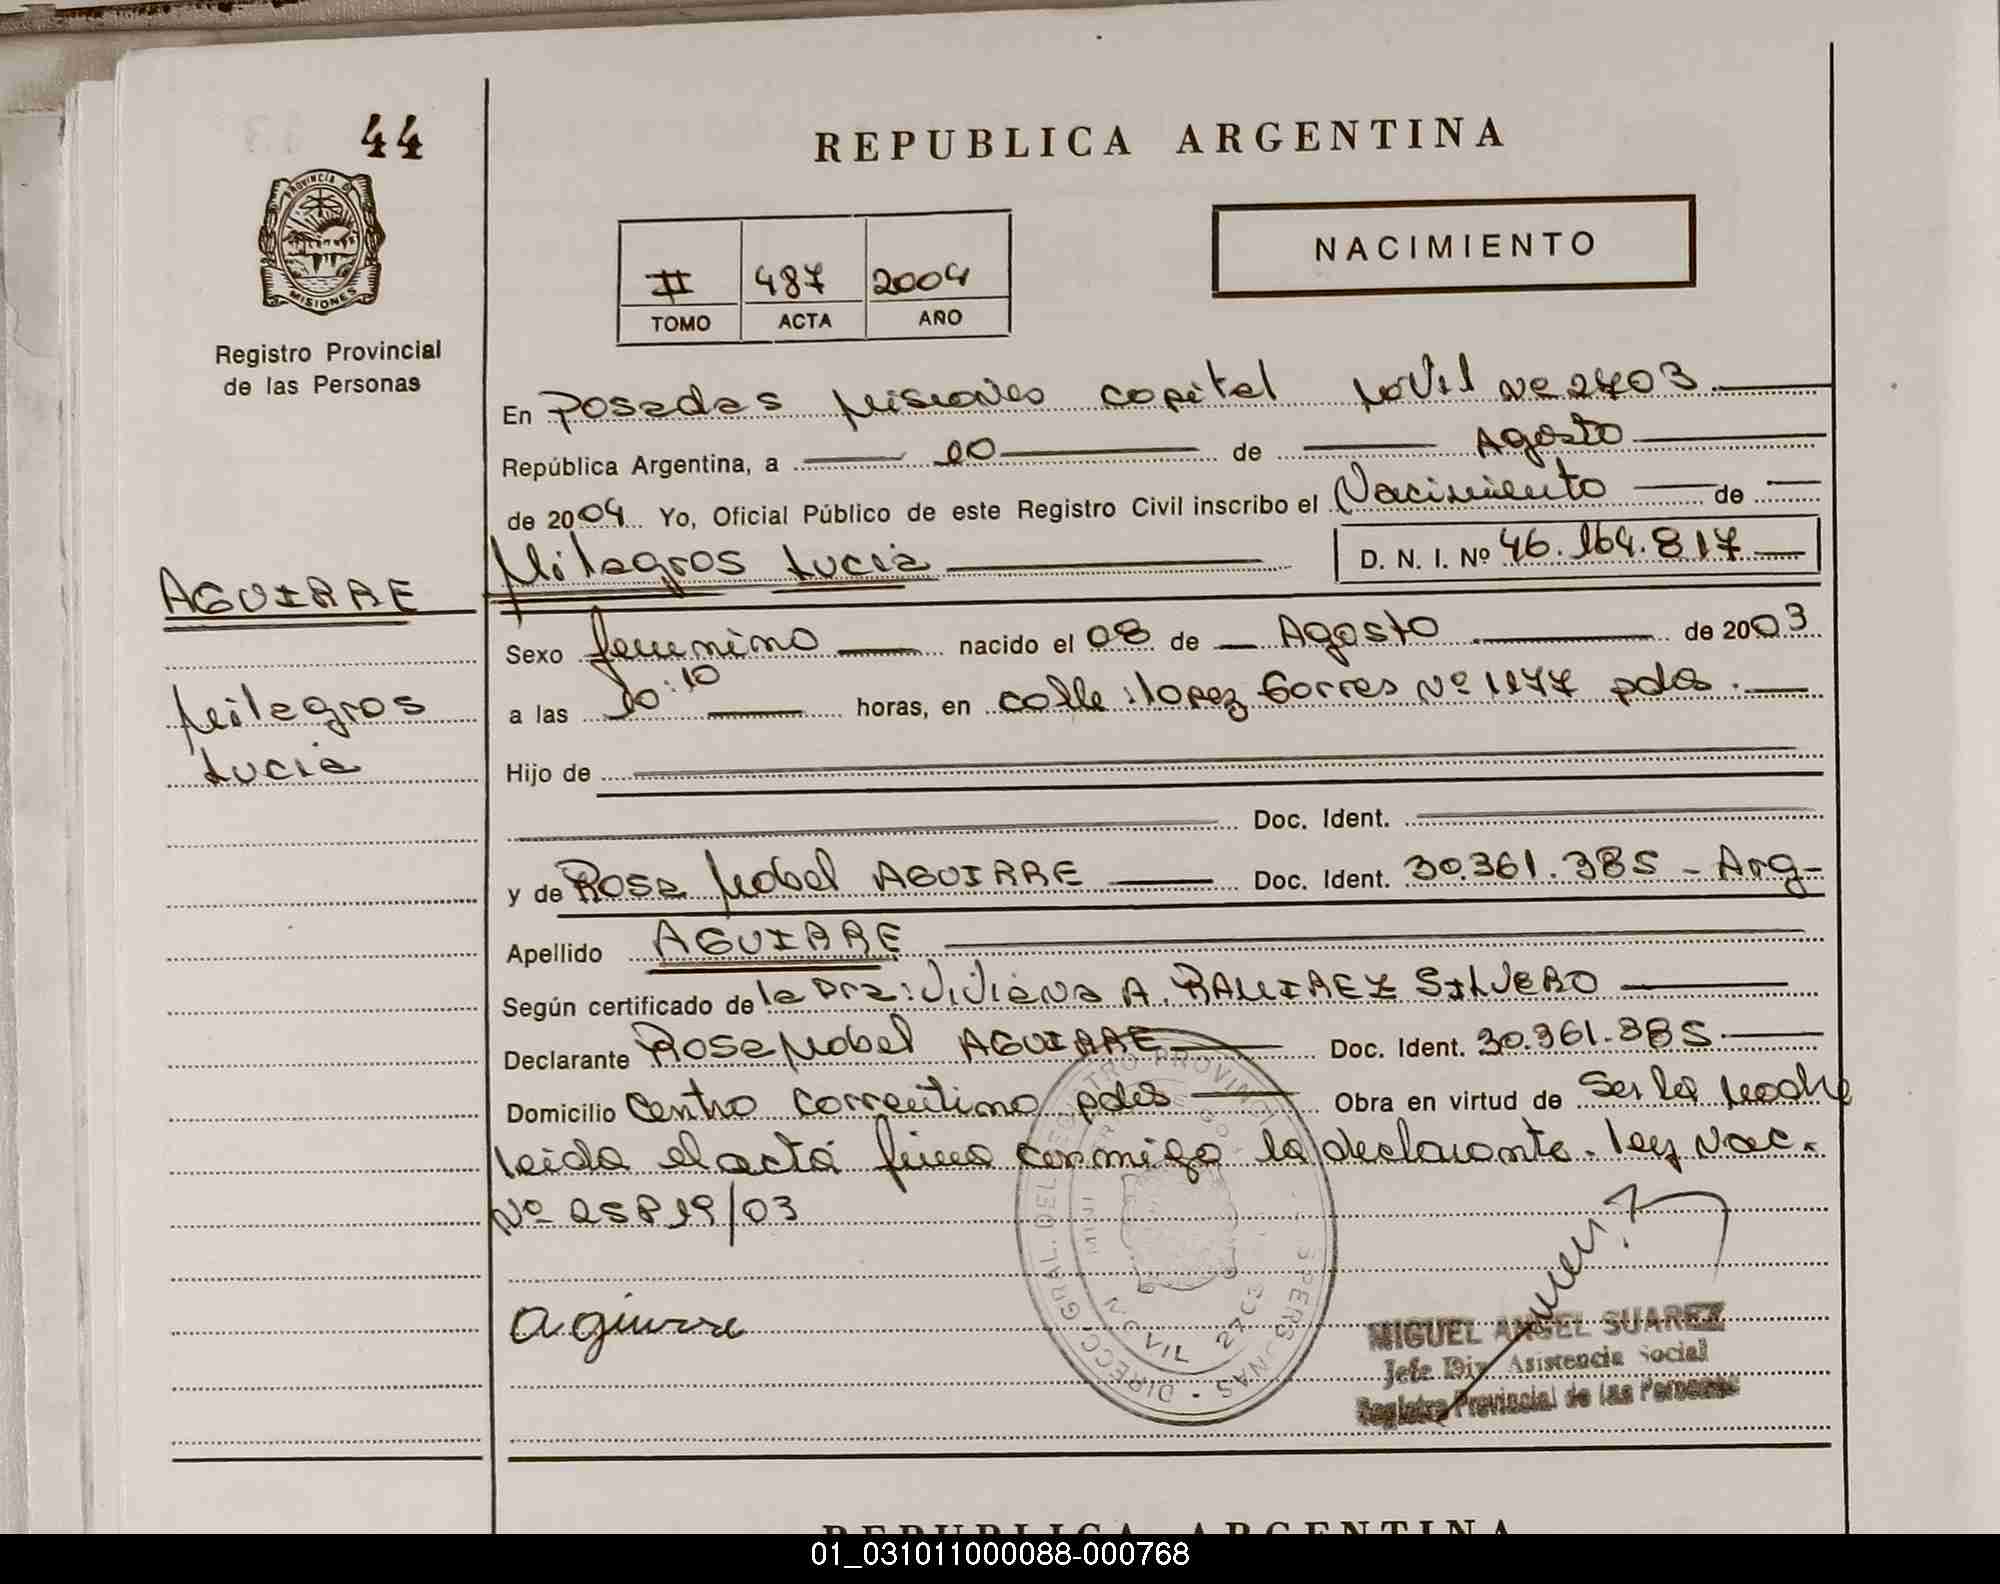 44
REPUBLICA ARGENTINA
PROVINCIA D MISIONES
NACIMIENTO
II 487 2004
TOMO ACTA AÑO
Registro Provincial
de las Personas
En Posadas Misiones capital Movil Nº 2703
República Argentina, a 10 de Agosto
de 2004 Yo, Oficial Público de este Registro Civil inscribo el Nacimiento de
Milagros Lucia D. N. I. Nº 46.164.817
AGUIRRE
Milagros
Lucia
Sexo femenino nacido el 08 de Agosto de 2003
a las 10:10 horas, en calle: lopez torres Nº 1177 pdas.
Hijo de
Doc. Ident.
y de Rosa Mabel AGUIRRE Doc. Ident. 30.361.385 - Arg-
Apellido AGUIRRE
Según certificado de la Dra: Viviana A. RAMIREZ SILVERO
Declarante Rosa Mabel AGUIRRE Doc. Ident. 30.361.385
Domicilio Centro correntino pdas Obra en virtud de Ser la Madre
leida el acta firma conmigo la declarante. ley Nac.
Nº 25819/03
aguirre
DIRECC. GRAL. DEL REGISTRO PROVIN PERSONAS
MOVIL 2703
MIGUEL ANGEL SUAREZ
Jefe Div. Asistencia Social
Registro Provincial de las Personas
REPUBLICA ARGENTINA
01_031011000088-000768